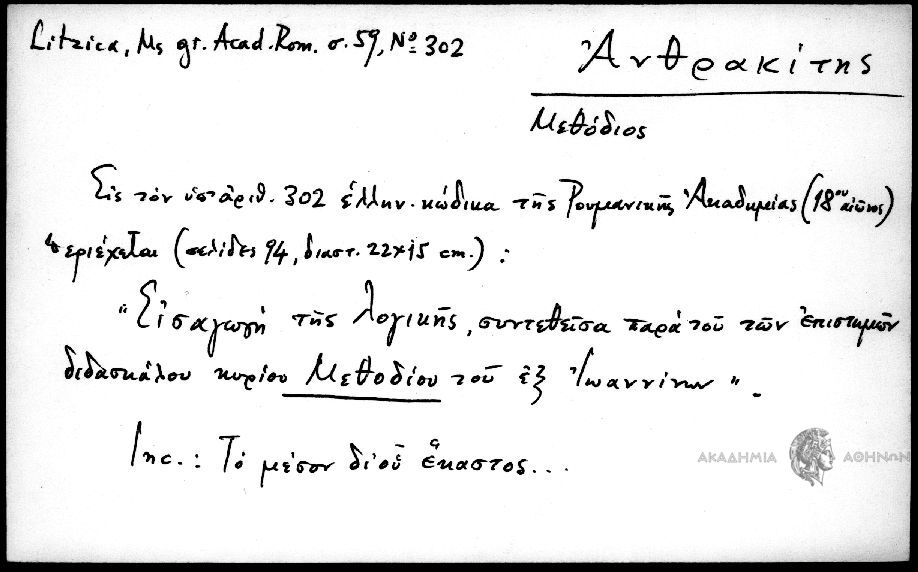 Litzica, Ms gr. Acad. Rom. σ. 59, Nº 302
Ἀνθρακίτης
Μεθόδιος
Εἰς τὸν ὑπ' ἀριθ. 302 ἑλλην. κώδικα τῆς Ρουμανικῆς Ἀκαδημίας (18ου αἰῶνος)
περιέχεται (σελίδες 94, διαστ. 22×15 cm.) :
"Εἰσαγωγὴ τῆς Λογικῆς, συντεθεῖσα παρὰ τοῦ τῶν ἐπιστημῶν
διδασκάλου κυρίου Μεθοδίου τοῦ ἐξ Ἰωαννίνων".
Inc.: Τὸ μέσον δι' οὗ ἕκαστος...
ΑΚΑΔΗΜΙΑ ΑΘΗΝΩΝ